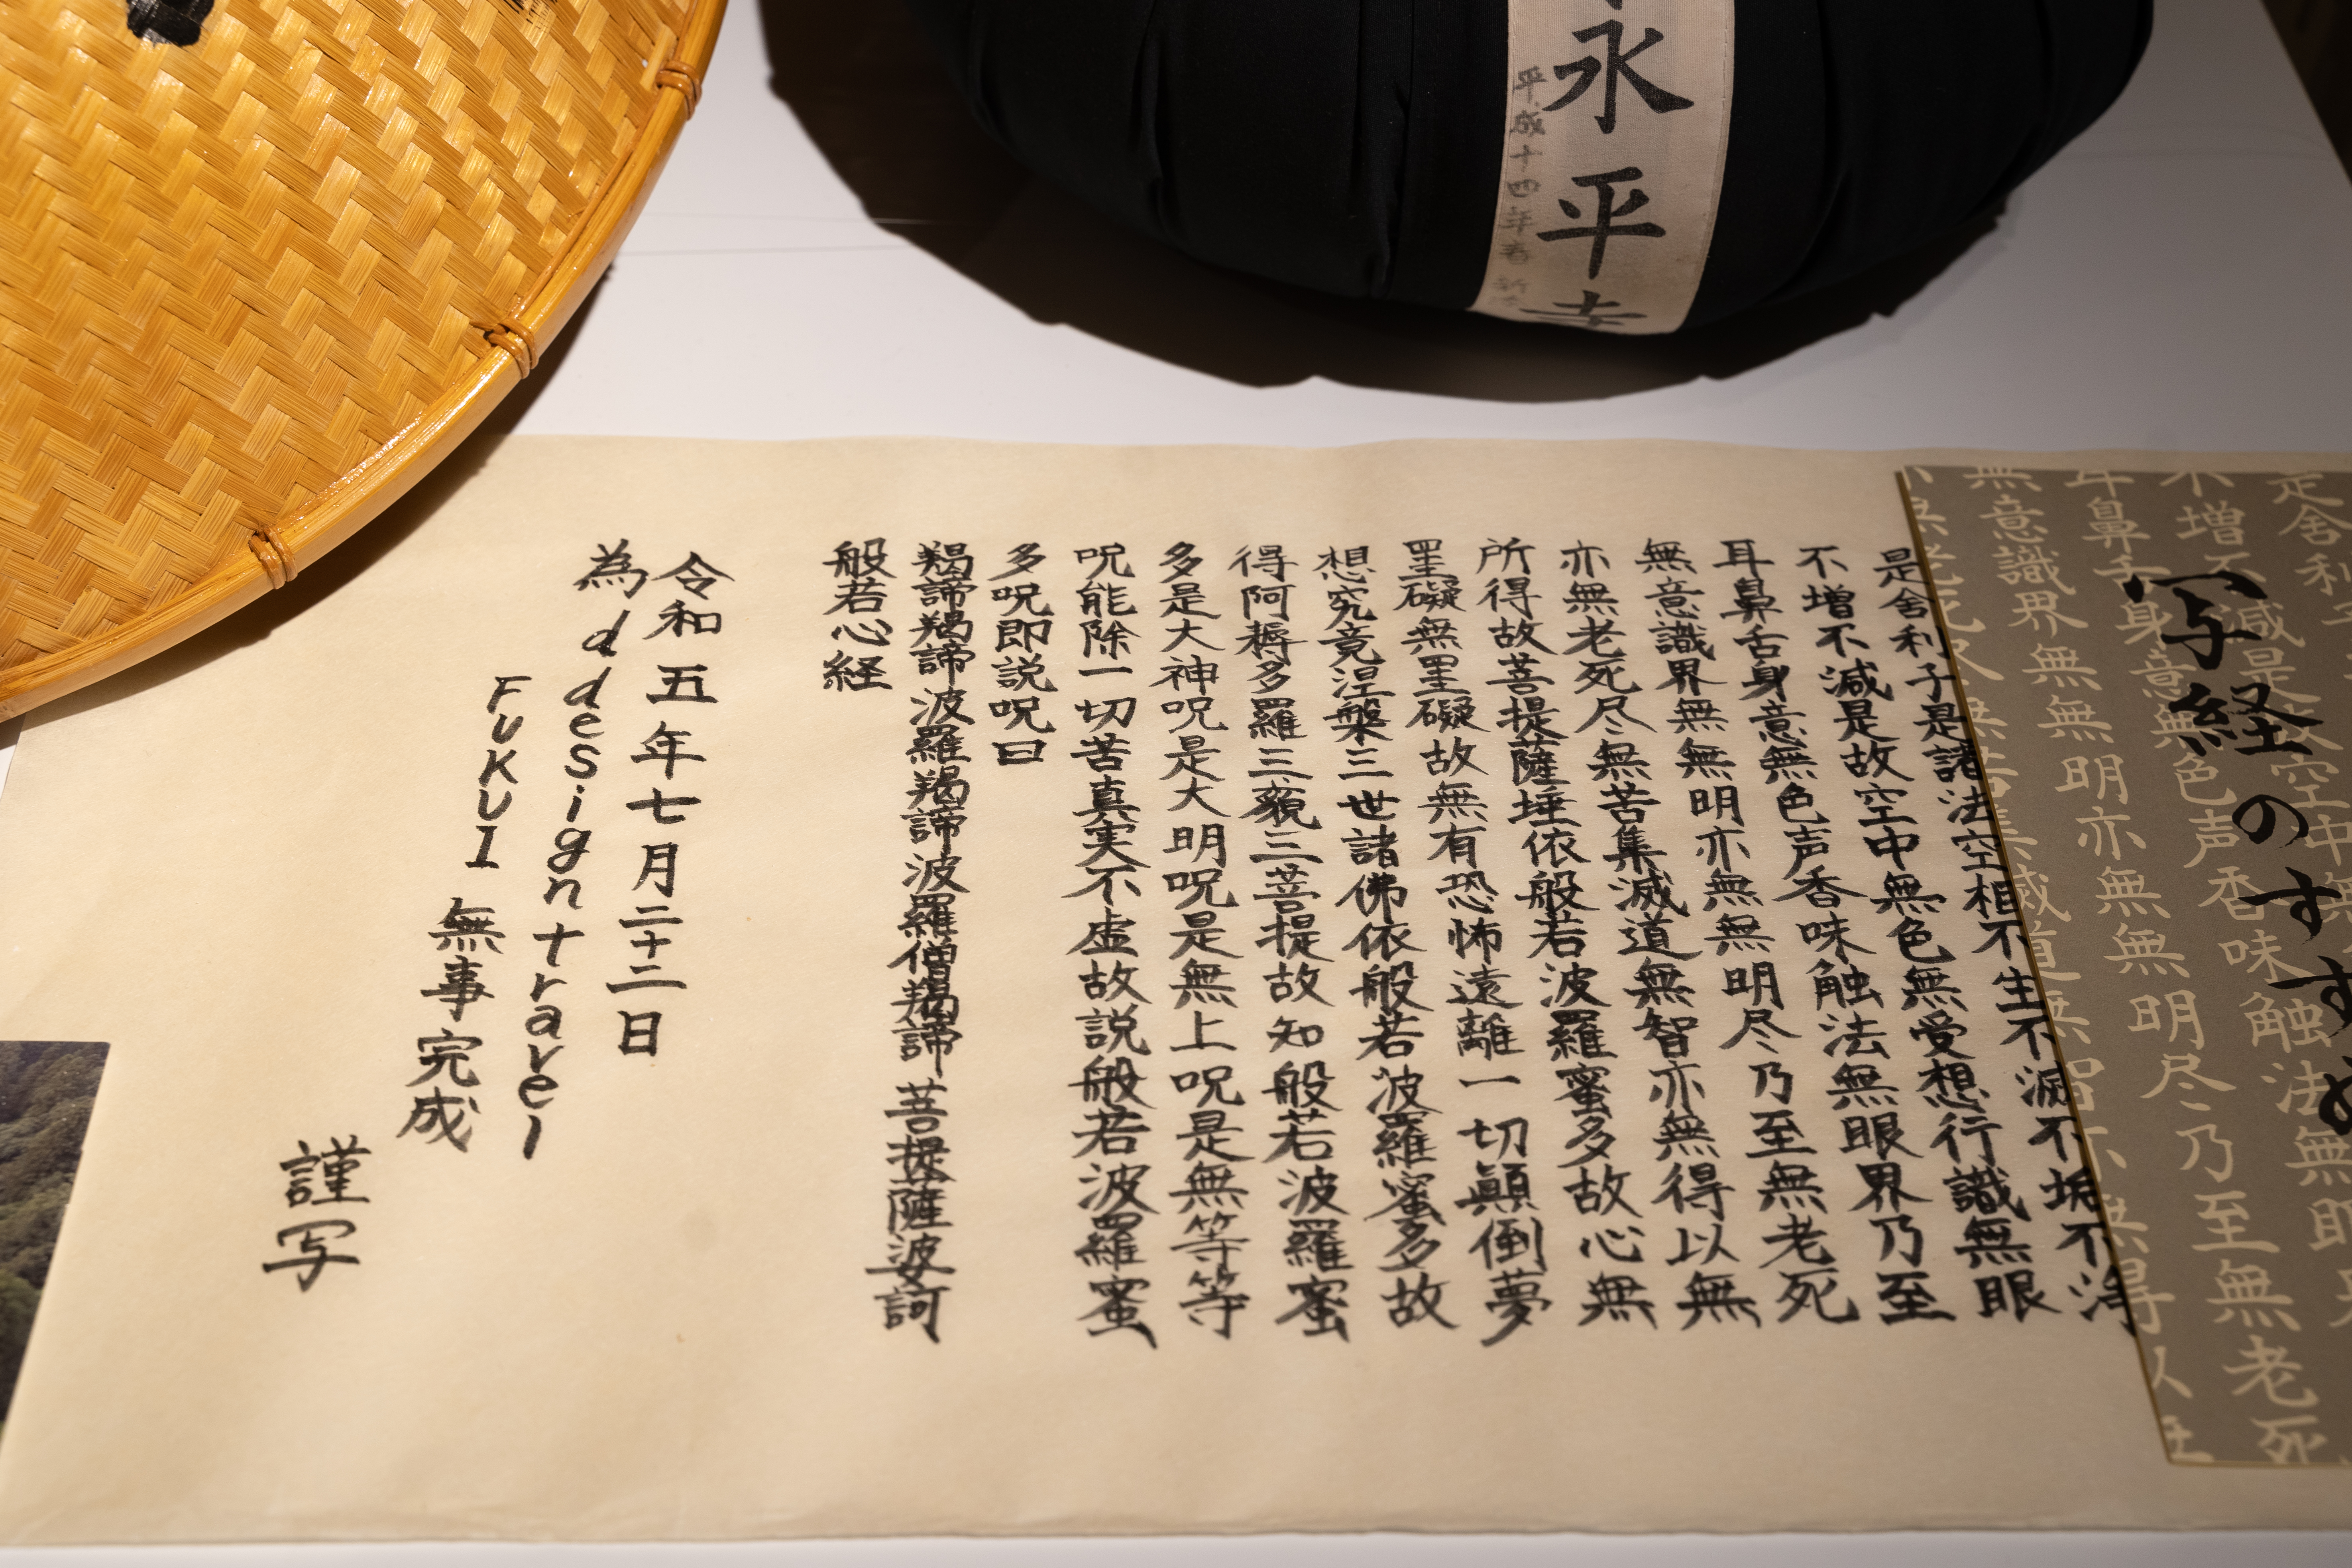 永平寺
平成十四年春
写経のすすめ
是舎利子是諸法空相不生不滅不垢不浄
不増不減是故空中無色無受想行識無眼
耳鼻舌身意無色声香味触法無眼界乃至
無意識界無無明亦無無明尽乃至無老死
亦無老死尽無苦集滅道無智亦無得以無
所得故菩提薩埵依般若波羅蜜多故心無
罣礙無罣礙故無有恐怖遠離一切顛倒夢
想究竟涅槃三世諸佛依般若波羅蜜多故
得阿耨多羅三藐三菩提故知般若波羅蜜
多是大神呪是大明呪是無上呪是無等等
呪能除一切苦真実不虚故説般若波羅蜜
多呪即説呪曰
羯諦羯諦波羅羯諦波羅僧羯諦菩提薩婆訶
般若心経
令和五年七月二十二日
為 d design travel
FUKUI 無事完成
謹写